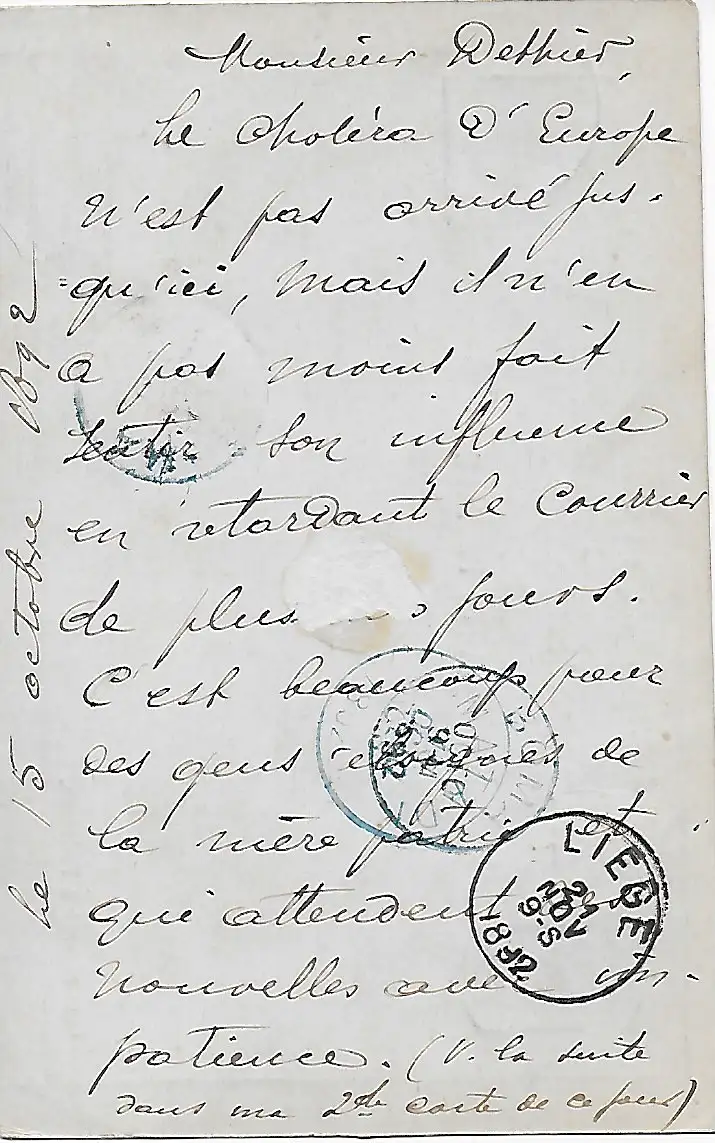 Monsieur Dethier,
Le Choléra D'Europe
N'est pas arrivé jus-
=qu'ici, Mais il n'en
a pas moins fait
sentir son influence
en retardant le Courrier
de plus jours.
C'est beaucoup pour
des gens éloignés de
la mère patrie et
qui attendent
Nouvelles avec im-
patience. (V. la suite
dans ma 2de carte de ce jour)
le 15 octobre 1892
LIEGE
21
NOV
9-S
1892